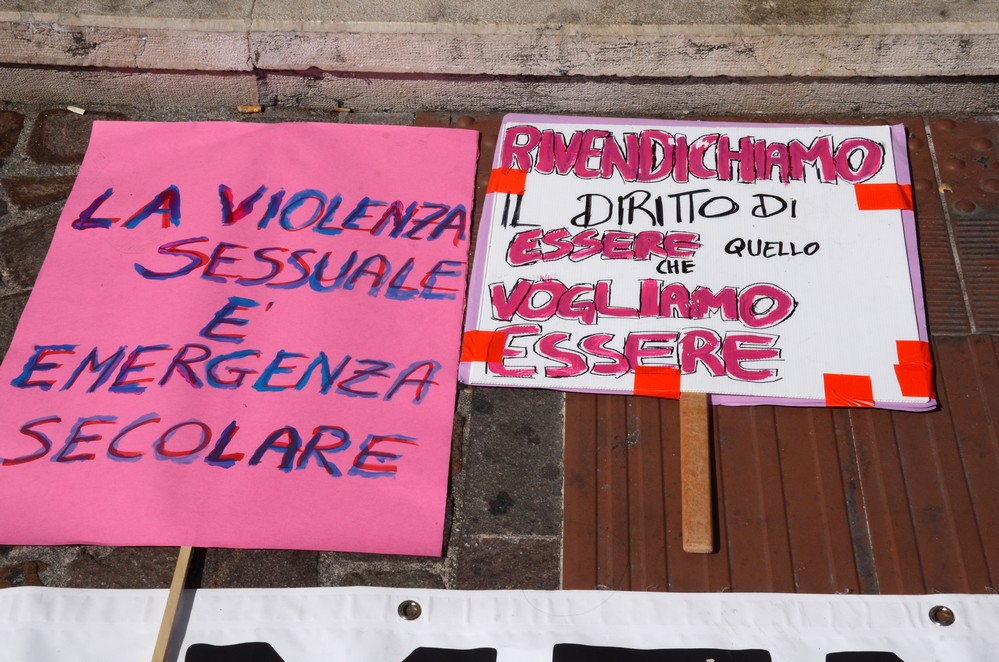 LA VIOLENZA
SESSUALE
E'
EMERGENZA
SECOLARE
RIVENDICHIAMO
IL DIRITTO DI
ESSERE QUELLO
CHE
VOGLIAMO
ESSERE